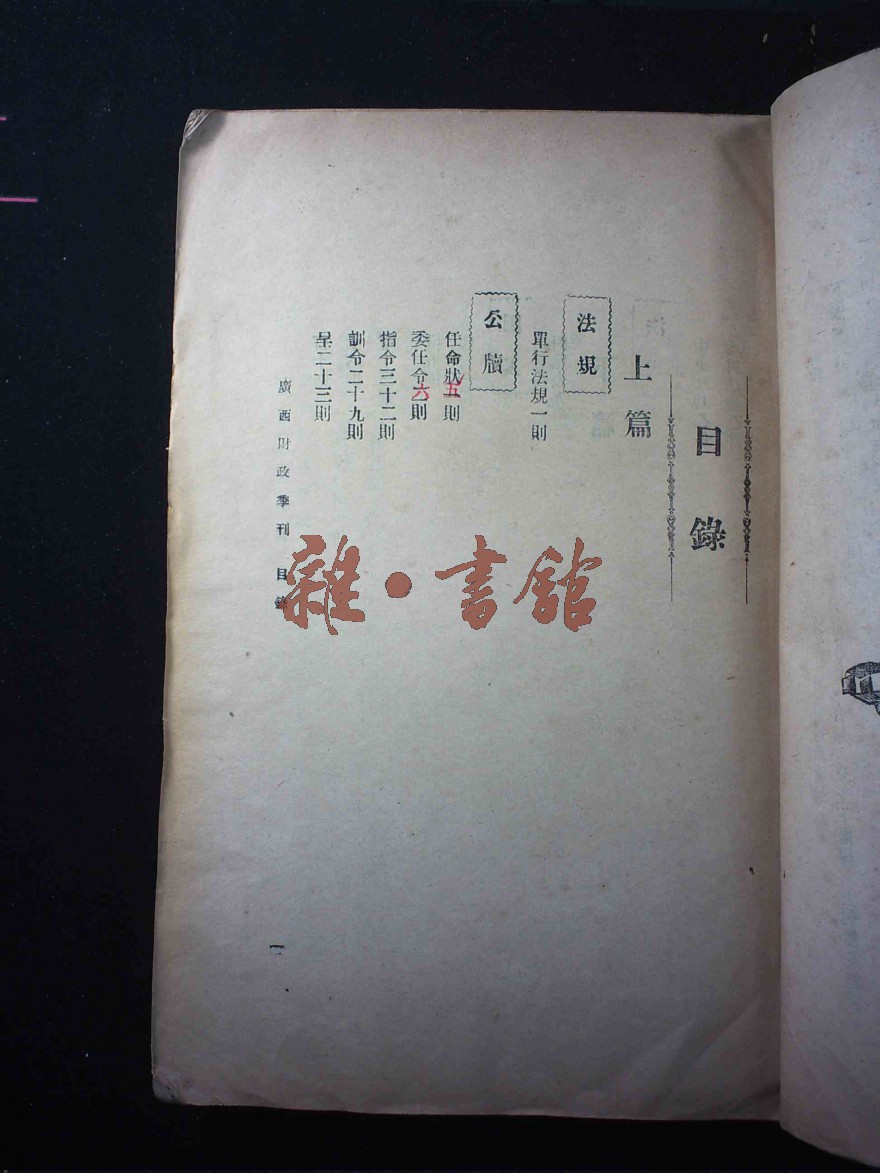 目錄
上篇
法規
單行法規一則
公牘
任命狀五則
委任令六則
指令三十二則
訓令二十九則
呈二十三則
廣西財政季刊 目錄
一
雜·書館